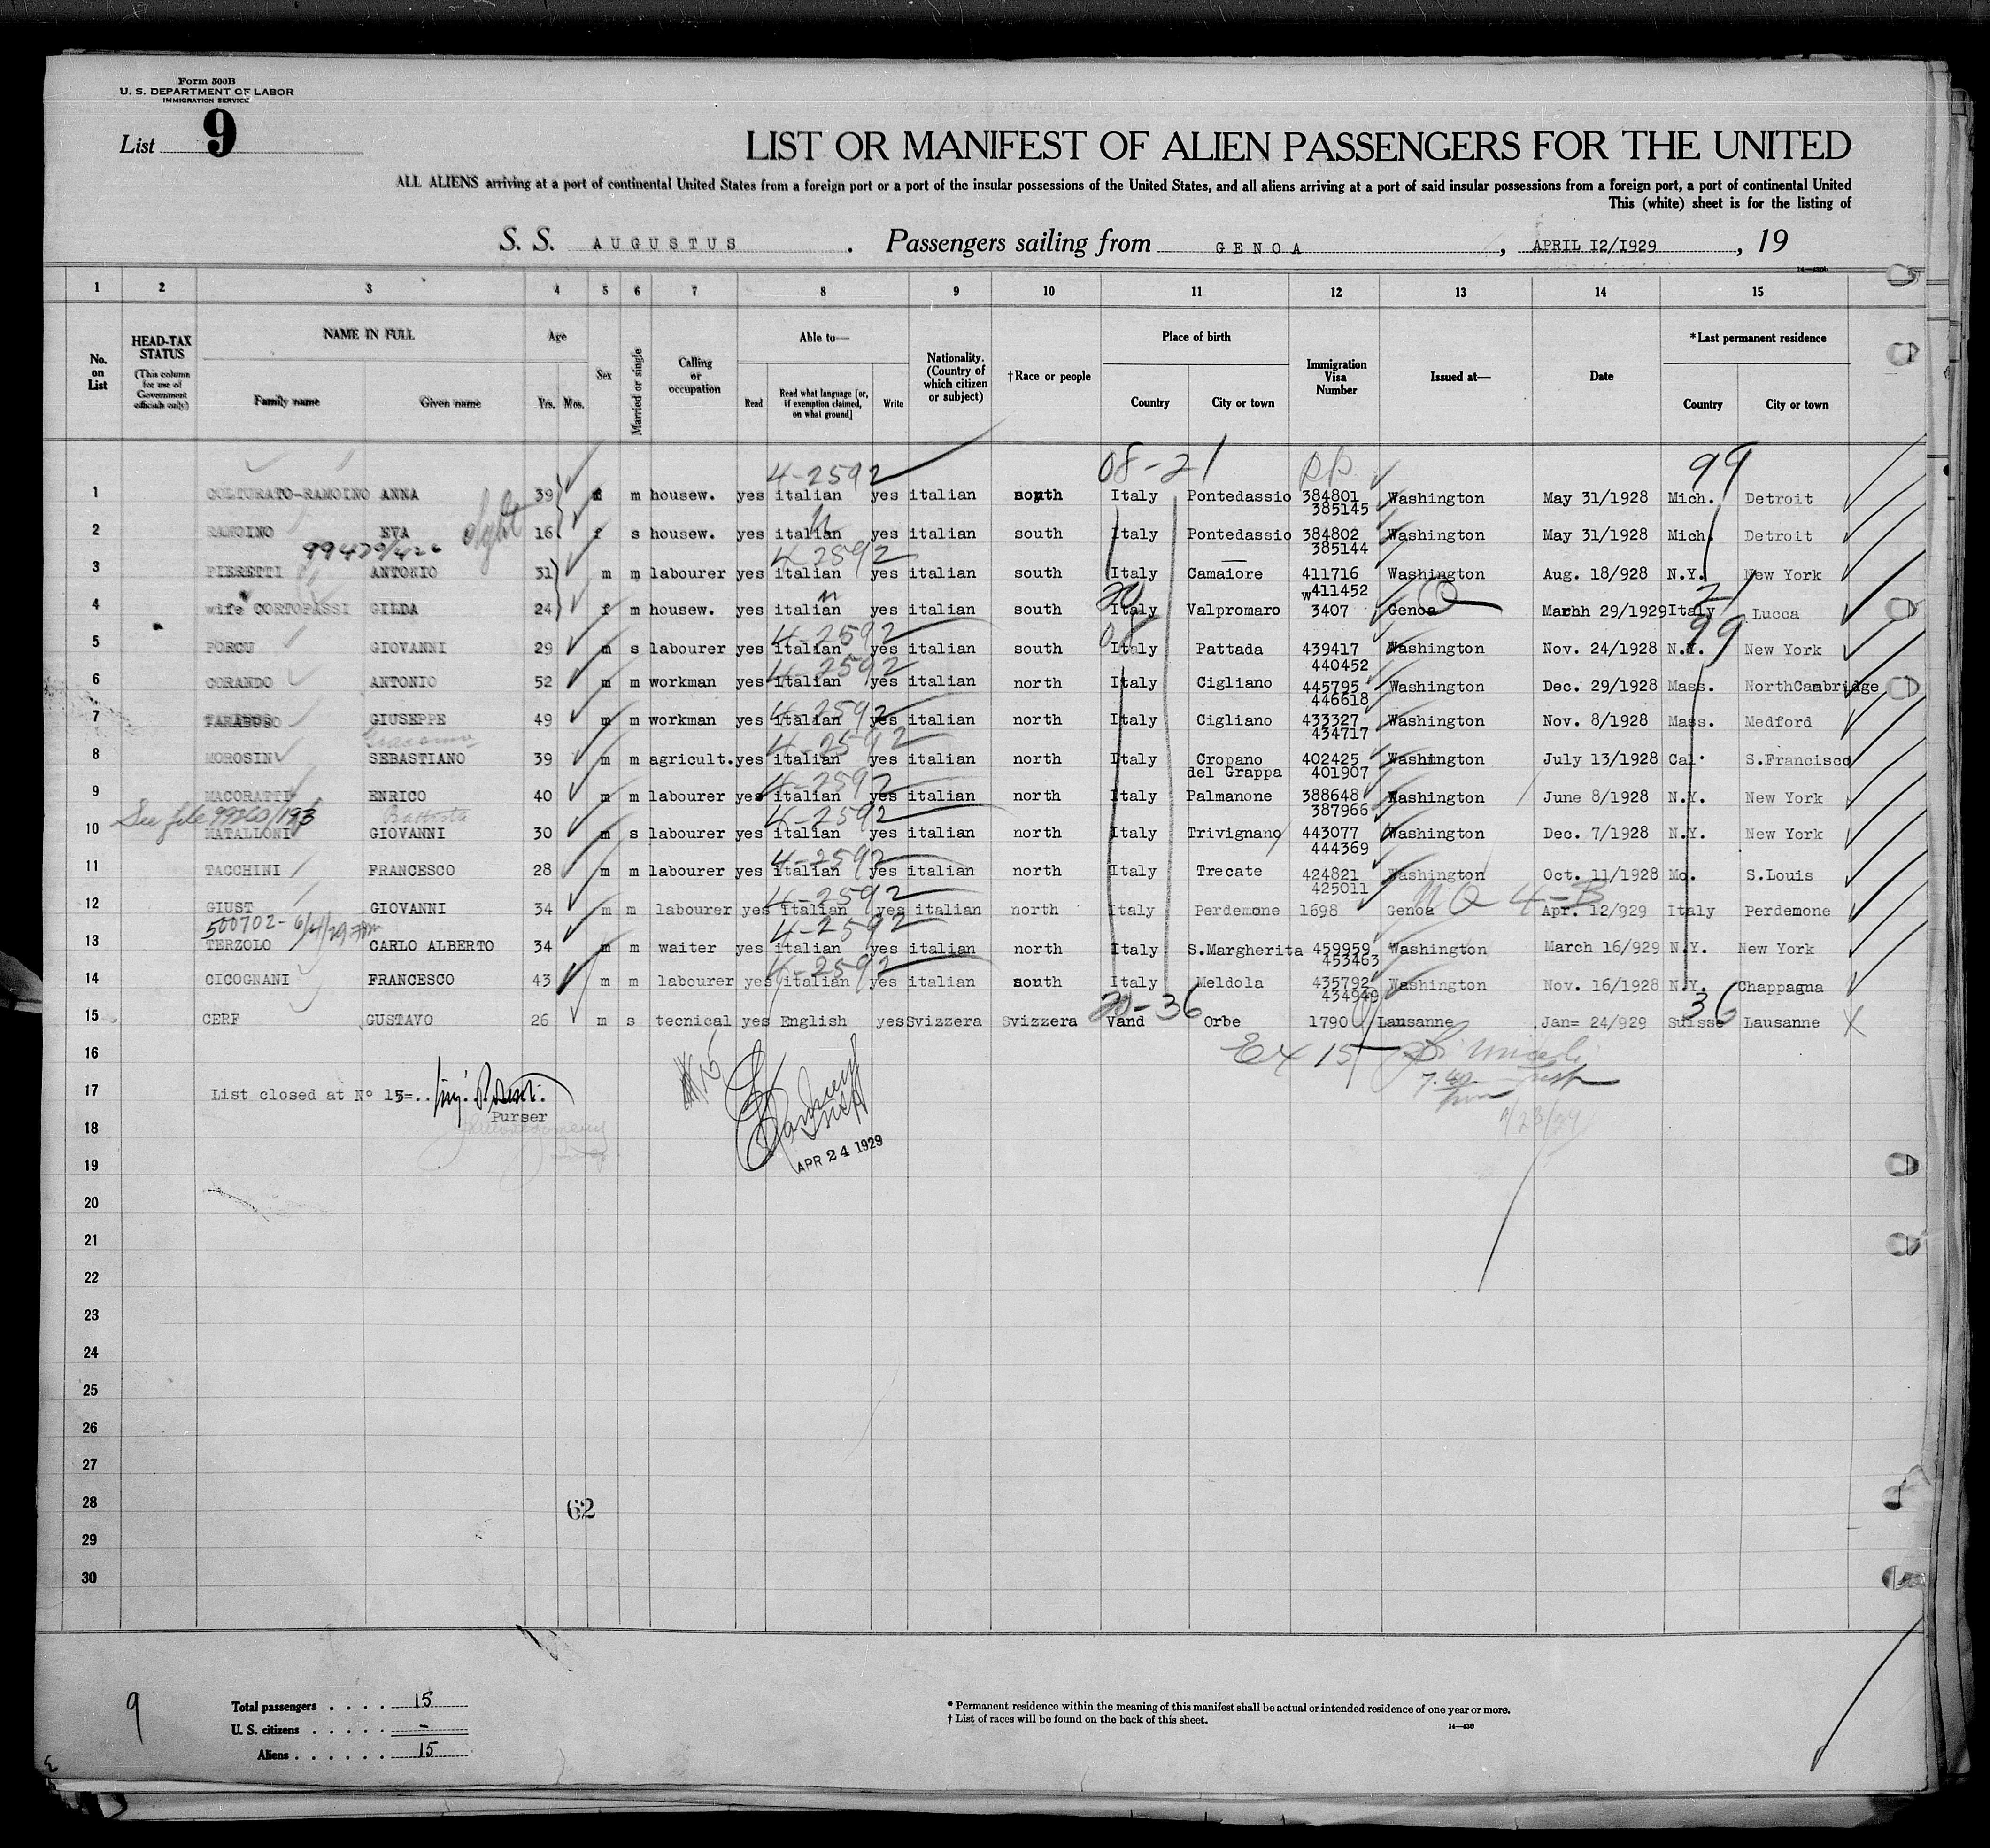 Form 500B
U. S. DEPARTMENT OF LABOR
IMMIGRATION SERVICE
List 9
LIST OR MANIFEST OF ALIEN PASSENGERS FOR THE UNITED
ALL ALIENS arriving at a port of continental United States from a foreign port or a port of the insular possessions of the United States, and all aliens arriving at a port of said insular possessions from a foreign port, a port of continental United
This (white) sheet is for the listing of
S. S. AUGUSTUS . Passengers sailing from GENOA , APRIL I2/I929 , 19
1 2 3 4 5 6 7 8 9 10 11 12 13 14 15
No. on List
HEAD-TAX STATUS (This column for use of Government officials only)
NAME IN FULL Family name Given name
Age Yrs. Mos.
Sex
Married or single
Calling or occupation
Able to— Read Read what language [or, if exemption claimed, on what ground] Write
Nationality. (Country of which citizen or subject)
†Race or people
Place of birth Country City or town
Immigration Visa Number
Issued at—
Date
*Last permanent residence Country City or town
4-2592 08-21 99
1 COLTURATO-RAMOINO ANNA 39 f m housew. yes italian yes italian south Italy Pontedassio 384801 Washington May 31/1928 Mich. Detroit
385145
2 RAMOINO EVA 16 f s housew. yes italian yes italian south Italy Pontedassio 384802 Washington May 31/1928 Mich. Detroit
385144
4-2592
3 PIERETTI ANTONIO 31 m m labourer yes italian yes italian south Italy Camaiore 411716 Washington Aug. 18/928 N.Y. New York
w411452
4 wife CORTOPASSI GILDA 24 f m housew. yes italian yes italian south Italy Valpromaro 3407 Genoa Marhh 29/1929 Italy Lucca
4-2592 99
5 PORCU GIOVANNI 29 m s labourer yes italian yes italian south Italy Pattada 439417 Washington Nov. 24/1928 N.Y. New York
440452
4-2592
6 CORANDO ANTONIO 52 m m workman yes italian yes italian north Italy Cigliano 445795 Washington Dec. 29/1928 Mass. NorthCambridge
446618
4-2592
7 GIUSEPPE 49 m m workman yes italian yes italian north Italy Cigliano 433327 Washington Nov. 8/1928 Mass. Medford
434717
Giacomo 4-2592
8 MOROSIN SEBASTIANO 39 m m agricult. yes italian yes italian north Italy Cropano 402425 Washington July 13/1928 Cal. S.Francisco
del Grappa 401907
4-2592
9 MACORATTI ENRICO 40 m m labourer yes italian yes italian north Italy Palmanone 388648 Washington June 8/1928 N.Y. New York
387966
See file 99260/193 Battista 4-2592
10 MATALLONI GIOVANNI 30 m s labourer yes italian yes italian north Italy Trivignano 443077 Washington Dec. 7/1928 N.Y. New York
444369
4-2592
11 TACCHINI FRANCESCO 28 m m labourer yes italian yes italian north Italy Trecate 424821 Washington Oct. 11/1928 Mo. S.Louis
425011
4-2592
12 GIUST GIOVANNI 34 m m labourer yes italian yes italian north Italy Perdemone 1698 Genoa Apr. 12/929 Italy Perdemone
500702- 6/4/29 4-2592
13 TERZOLO CARLO ALBERTO 34 m m waiter yes italian yes italian north Italy S.Margherita 459959 Washington March 16/929 N.Y. New York
453463
4-2592
14 CICOGNANI FRANCESCO 43 m m labourer yes italian yes italian south Italy Meldola 435792 Washington Nov. 16/1928 N.Y. Chappagua
434949
36
15 CERF GUSTAVO 26 m s tecnical yes English yes Svizzera Svizzera Vand Orbe 1790 Lausanne Jan= 24/929 Suisse Lausanne
16
17 List closed at N° 15=..
Purser
18
APR 24 1929
19
20
21
22
23
24
25
26
27
28
62
29
30
9
Total passengers . . . . 15
U. S. citizens . . . . . -
Aliens . . . . . . 15
* Permanent residence within the meaning of this manifest shall be actual or intended residence of one year or more.
† List of races will be found on the back of this sheet.
14—430